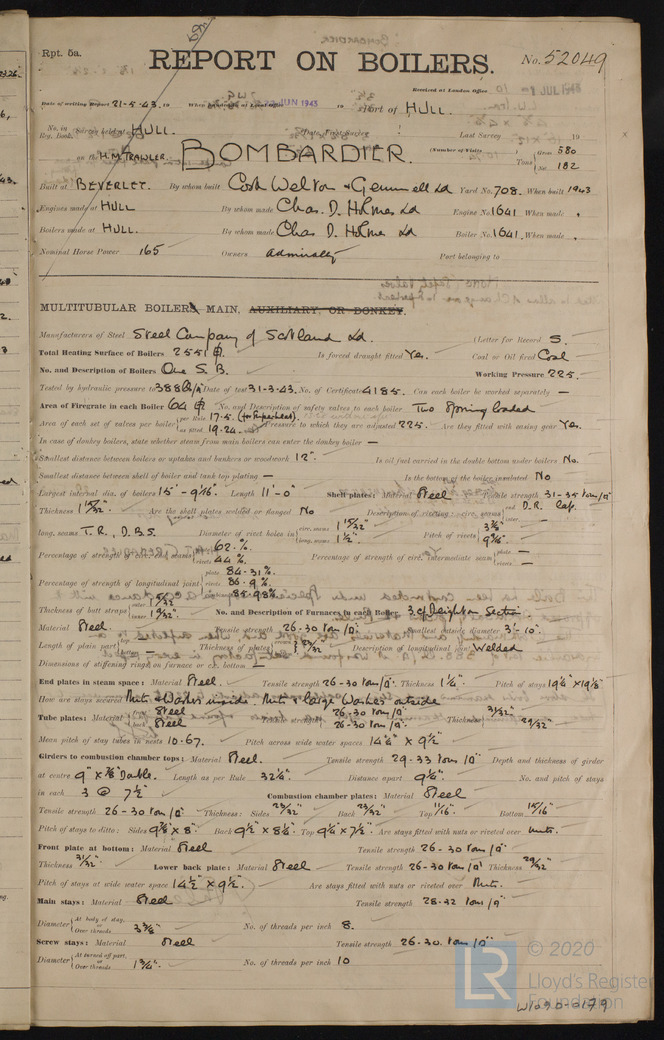 Rpt. 5a.
REPORT ON BOILERS.
No. 52049
Received at London Office JUL 1943
Date of writing Report 21-5-43. 19 When handed in at Local Office JUN 1943 19 Port of HULL.
No. in Reg. Book. Survey held at HULL. Date, First Survey Last Survey 19
on the H.M. TRAWLER. BOMBARDIER. (Number of Visits ) Tons Gross 580 Net 182
Built at BEVERLEY. By whom built Cook Welton & Gemmell Ld Yard No. 708. When built 1943
Engines made at HULL By whom made Chas. D. Holmes Ld Engine No. 1641 When made
Boilers made at HULL. By whom made Chas D. Holmes Ld Boiler No. 1641. When made
Nominal Horse Power 165 Owners Admiralty Port belonging to
MULTITUBULAR BOILERS MAIN, AUXILIARY, OR DONKEY.
Manufacturers of Steel Steel Company of Scotland Ld. (Letter for Record S.
Total Heating Surface of Boilers 2551 Is forced draught fitted Yes. Coal or Oil fired Coal
No. and Description of Boilers One S.B. Working Pressure 225.
Tested by hydraulic pressure to 388 Date of test 31-3-43. No. of Certificate 4185. Can each boiler be worked separately —
Area of Firegrate in each Boiler 64 No. and Description of safety valves to each boiler Two Spring loaded
Area of each set of valves per boiler per Rule 17.5. (for superheat) as fitted 19.24. Pressure to which they are adjusted 225. Are they fitted with easing gear Yes.
In case of donkey boilers, state whether steam from main boilers can enter the donkey boiler —
Smallest distance between boilers or uptakes and bunkers or woodwork 12". Is oil fuel carried in the double bottom under boilers No.
Smallest distance between shell of boiler and tank top plating — Is the bottom of the boiler insulated No
Largest internal dia. of boilers 15' - 9 9/16. Length 11' - 0" Shell plates: Material Steel Tensile strength 31-35 tons/□"
Thickness 1 15/32" Are the shell plates welded or flanged No Description of riveting: circ. seams end D.R. Lap. inter —
long. seams T.R., D.B.S. Diameter of rivet holes in circ. seams 1 15/32" long. seams 1 1/2" Pitch of rivets
Percentage of strength of circ. end seams plate 62.% rivets 44% Percentage of strength of circ. intermediate seam plate — rivets —
Percentage of strength of longitudinal joint plate 84.31% rivets 86.9% combined 85.98%
Thickness of butt straps outer 1 5/32 inner 1 9/32" No. and Description of Furnaces in each Boiler 3 of Deighton Section
Material Steel. Tensile strength 26-30 tons/□". Smallest outside diameter 3' - 10"
Length of plain part top bottom — Thickness of plates Description of longitudinal joint Welded
Dimensions of stiffening rings on furnace or c.c. bottom —
End plates in steam space: Material Steel. Tensile strength 26-30 tons/□". Thickness 1 1/4". Pitch of stays 19 1/4" x 19 1/8"
How are stays secured Nuts & Washers inside. Nuts & large Washers outside
Tube plates: Material Steel Steel Tensile strength 26-30 tons/□" 26-30 tons/□" Thickness 31/32" 29/32"
Mean pitch of stay tubes in nests 10.67. Pitch across wide water spaces 14 1/4" x 9 1/2"
Girders to combustion chamber tops: Material Steel. Tensile strength 29-33 tons/□" Depth and thickness of girder
at centre 9" x 7/8" Double. Length as per Rule 32 1/4" Distance apart 9 1/4". No. and pitch of stays
in each 3 @ 7 1/2" Combustion chamber plates: Material Steel
Tensile strength 26-30 tons/□" Thickness: Sides 23/32" Back 23/32" Top 11/16". Bottom 15/16"
Pitch of stays to ditto: Sides 9 3/4" x 8" Back 9 1/2" x 8 1/4" Top 9 1/4" x 7 1/2" Are stays fitted with nuts or riveted over Nuts.
Front plate at bottom: Material Steel Tensile strength 26-30 tons/□"
Thickness 31/32" Lower back plate: Material Steel Tensile strength 26-30 tons/□" Thickness 29/32"
Pitch of stays at wide water space 14 1/2" x 9 1/2". Are stays fitted with nuts or riveted over Nuts.
Main stays: Material Steel Tensile strength 28-32 tons/□"
Diameter At body of stay, or Over threads 3 3/8" No. of threads per inch 8.
Screw stays: Material Steel Tensile strength 26-30 tons/□"
Diameter At turned off part, or Over threads 1 3/4". No. of threads per inch 10
LR © 2020 Lloyd's Register Foundation
W1090-0179